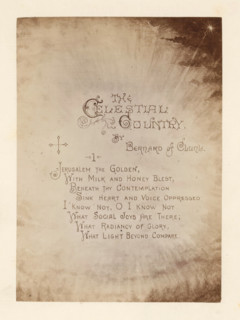 THE
CELESTIAL
COUNTRY,
BY
BERNARD of CLUNI.
-1-
JERUSALEM THE GOLDEN,
WITH MILK AND HONEY BLEST,
BENEATH THY CONTEMPLATION
SINK HEART AND VOICE OPPRESSED
I KNOW NOT, O I KNOW NOT
WHAT SOCIAL JOYS ARE THERE;
WHAT RADIANCY OF GLORY,
WHAT LIGHT BEYOND COMPARE.